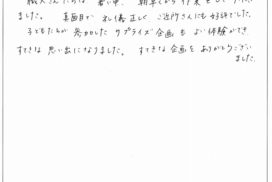 職人さんたちは 暑い中、 朝早くから 作業をして
ました。 真面目で 礼儀正しく ご近所さんにも 好評でした。
子どもたちが 参加した サプライズ企画も よい体験ができ、
すてきな 思い出になりました。 すてきな企画を ありがとうござい
ました。